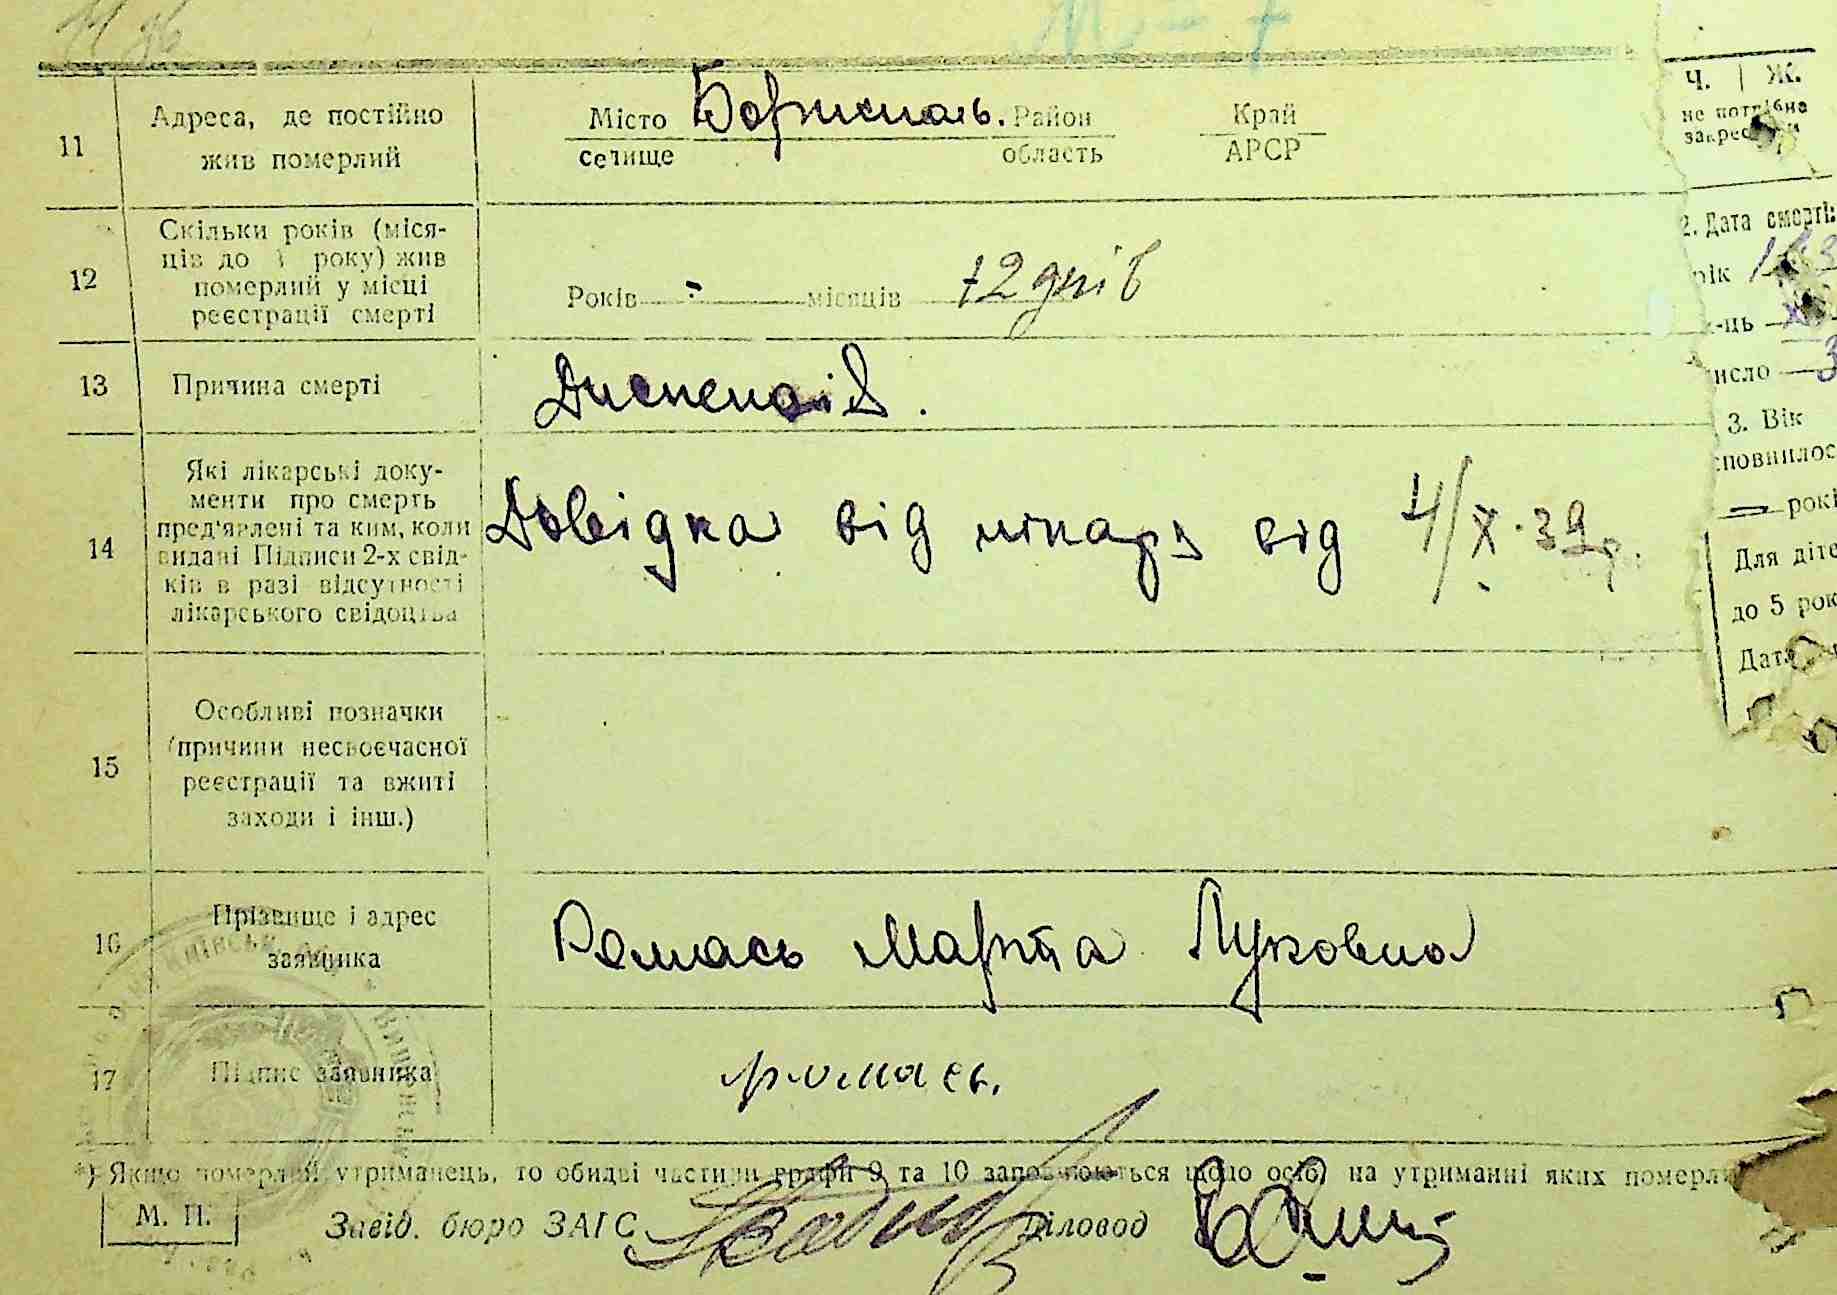 11
Адреса, де постійно
жив померлий
Місто Бориспіль. Район Край
селище область АРСР
12
Скільки років (міся-
ців до 1 року) жив
померлий у місці
реєстрації смерті
Років - місяців 12 днів
13
Причина смерті
Диспепсія.
14
Які лікарські доку-
менти про смерть
пред'явлені та ким, коли
видані Підписи 2-х свід-
ків в разі відсутності
лікарського свідоцтва
Довідка від лікаря від 4/X.39р.
15
Особливі позначки
(причини несвоєчасної
реєстрації та вжиті
заходи і інш.)
16
Прізвище і адрес
заявника
Ромась Марта Луковна
17
Підпис заявника
ромась.
*) Якщо померлий утриманець, то обидві частини графи 9 та 10 заповнюються щодо осіб, на утриманні яких померли
М. П.
Завід. бюро ЗАГС Діловод
Ч. | Ж.
не потрібне
2. Дата смерті:
рік
число 3
3. Вік
рокі
Для діте
до 5 рок
Дата